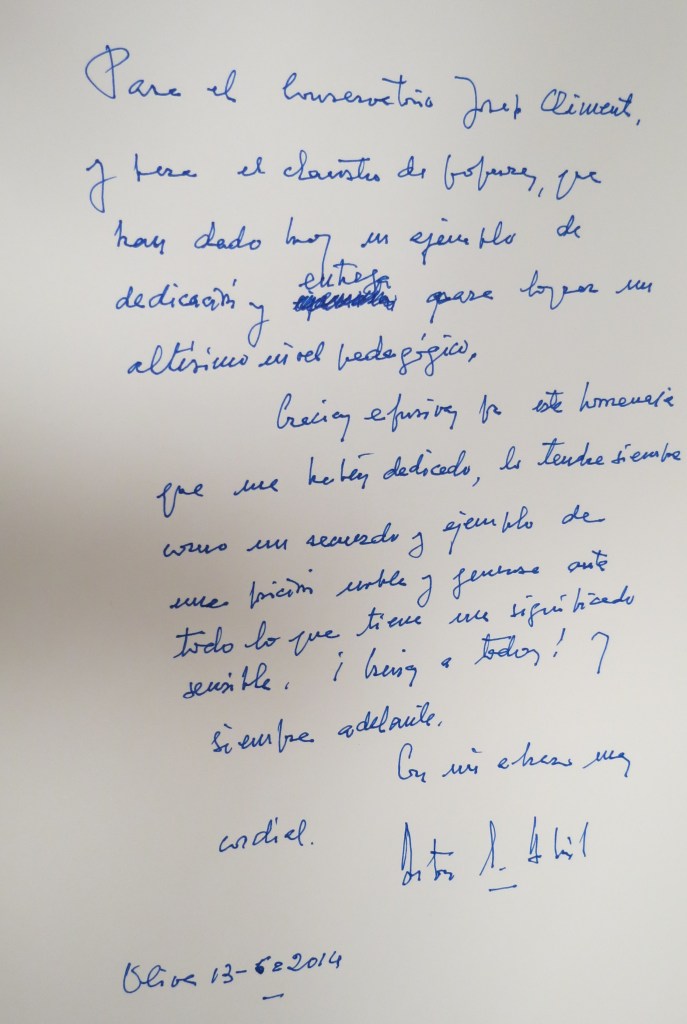 Para el Conservatorio Josep Climent,
y para el claustro de profesores, que
han dado hoy un ejemplo de
dedicación y entrega para lograr un
altísimo nivel pedagógico.
Gracias efusivas por este homenaje
que me habéis dedicado, lo tendré siempre
como un recuerdo y ejemplo de
una posición noble y generosa ante
todo lo que tiene un significado
sensible. ¡Gracias a todos! y
siempre adelante.
Con mi abrazo muy
cordial.
Oliva 13-6-2014